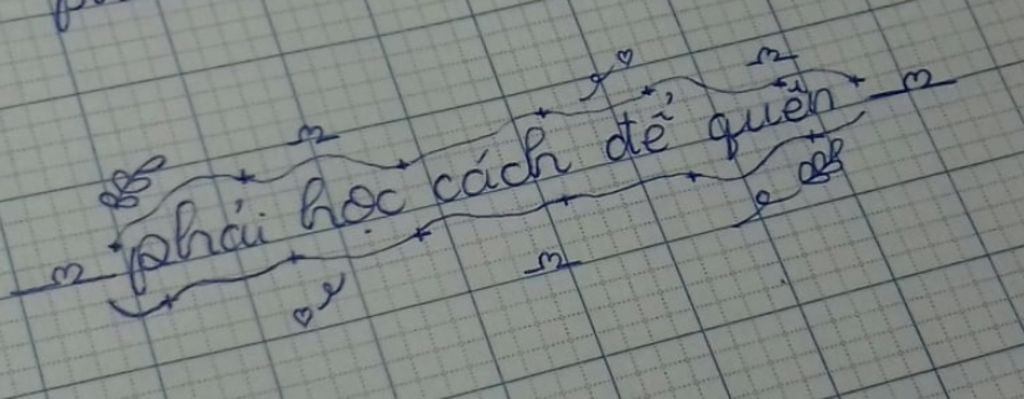 phải học cách để quên